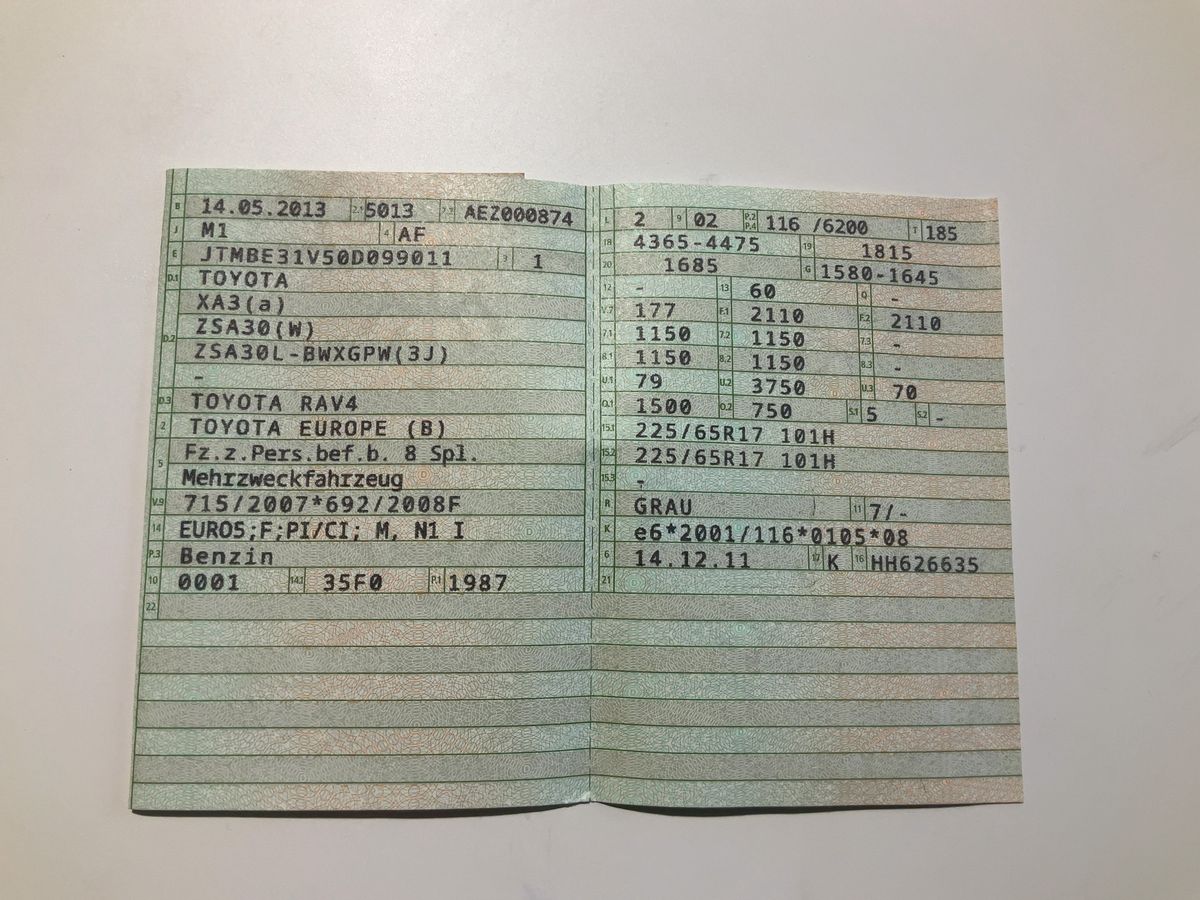 B 14.05.2013 2.1 5013 2.2 AEZ000874
J M1 4 AF
E JTMBE31V50D099011 3 1
D.1 TOYOTA
XA3(a)
D.2 ZSA30(W)
ZSA30L-BWXGPW(3J)
-
D.3 TOYOTA RAV4
2 TOYOTA EUROPE (B)
5 Fz.z.Pers.bef.b. 8 Spl.
Mehrzweckfahrzeug
V.9 715/2007*692/2008F
14 EURO5;F;PI/CI; M, N1 I
P.3 Benzin
10 0001 14.1 35F0 P.1 1987
22
L 2 9 02 P.2 P.4 116 /6200 T 185
18 4365-4475 19 1815
20 1685 G 1580-1645
12 - 13 60 Q -
V.7 177 F.1 2110 F.2 2110
7.1 1150 7.2 1150 7.3 -
8.1 1150 8.2 1150 8.3 -
U.1 79 U.2 3750 U.3 70
O.1 1500 O.2 750 S.1 5 S.2 -
15.1 225/65R17 101H
15.2 225/65R17 101H
15.3 -
R GRAU 11 7/-
K e6*2001/116*0105*08
6 14.12.11 17 K 16 HH626635
21